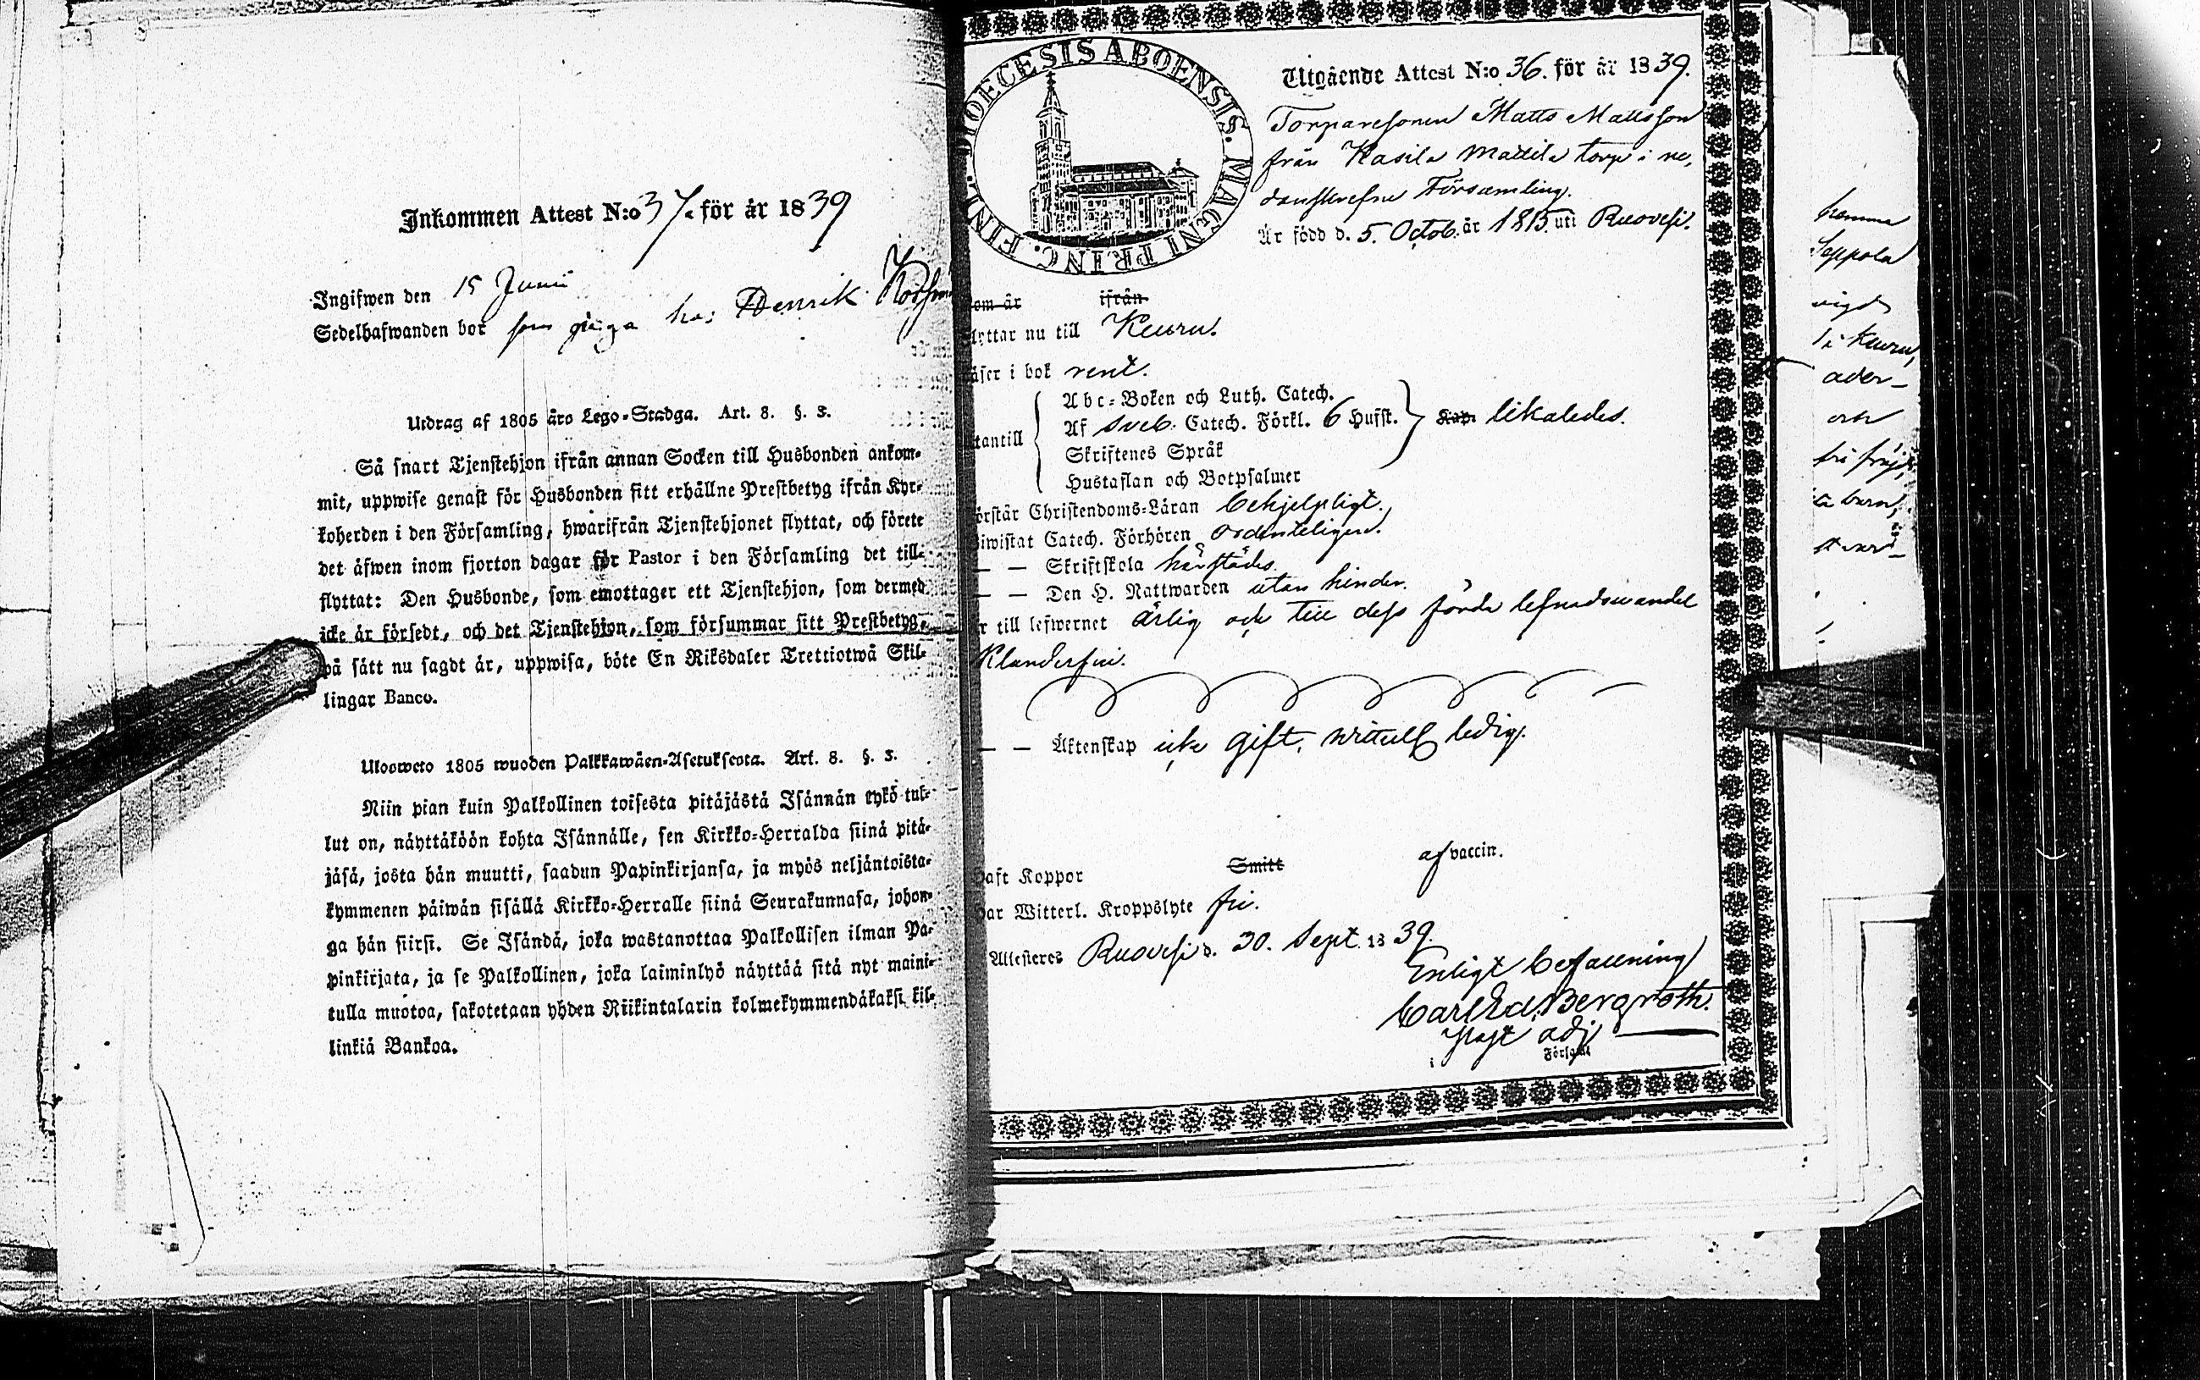 Inkommen Attest N:o 37. för år 1839
Ingifwen den 15 Junii
Sedelhafwanden bor som piga hos Henrik
Utdrag af 1805 års Lego-Stadga. Art. 8. §. 3.
Så snart Tjenstehjon ifrån annan Socken till Husbonden ankom-
mit, uppwise genast för Husbonden sitt erhållne Prestbetyg ifrån Kyr-
koherden i den Församling, hwarifrån Tjenstehjonet flyttat, och förete
det äfwen inom fjorton dagar för Pastor i den Församling det till-
flyttat: Den Husbonde, som emottager ett Tjenstehjon, som dermed
icke är försedt, och det Tjenstehjon, som försummar sitt Prestbetyg,
på sätt nu sagdt är, uppwisa, böte En Riksdaler Trettiotwå Skil-
lingar Banco.
Ulosweto 1805 wuoden Palkkawäen-Asetuksesta. Art. 8. §. 3.
Niin pian kuin Palkollinen toisesta pitäjästä Isännän tykö tul-
lut on, näyttäköön kohta Isännälle, sen Kirkko-Herralda siinä pitä-
jäsä, josta hän muutti, saadun Papinkirjansa, ja myös neljäntoista-
kymmenen päiwän sisällä Kirkko-Herralle siinä Seurakunnasa, johon-
ga hän siirsi. Se Isändä, joka wastanottaa Palkollisen ilman Pa-
pinkirjata, ja se Palkollinen, joka laiminlyö näyttää sitä nyt maini-
tulla muotoa, sakotetaan yhden Riikintalarin kolmekymmendäkaksi kil-
linkiä Bankoa.
DIOECESIS ABOENSIS. MAGNI PRINC. FINL.
Utgående Attest N:o 36. för år 1839.
Torparesonen Matts Mattsson
från Kasila Mattila torp i ne-
danskrefne Församling.
Är född d. 5. Octob. år 1815 uti Ruovesi.
om är ifrån
lyttar nu till Keuru.
äser i bok rent.
Abc-Boken och Luth. Catech.
Af Sveb. Catech. Förkl. 6 Hufst. Kap. likaledes.
tantill
Skriftenes Språk
Hustaflan och Botpsalmer
örstår Christendoms-Läran behjelpligt.
iwistat Catech. Förhören ordenteligen.
— — Skriftskola härstädes.
— — Den H. Nattwarden utan hinder.
r till lefwernet ärlig och till dess förda lefnadswandel
Klanderfri.
— — Äktenskap icke gift, witterl. ledig.
aft Koppor Smitt af vaccin.
ar Witterl. Kroppslyte fri.
Attesteres Ruovesi d. 30. Sept. 1839.
Enligt befallning
Carl Ed. Bergroth.
Past. adj
i Församl
hemma
Seppola
vigd
i Keuru,
och